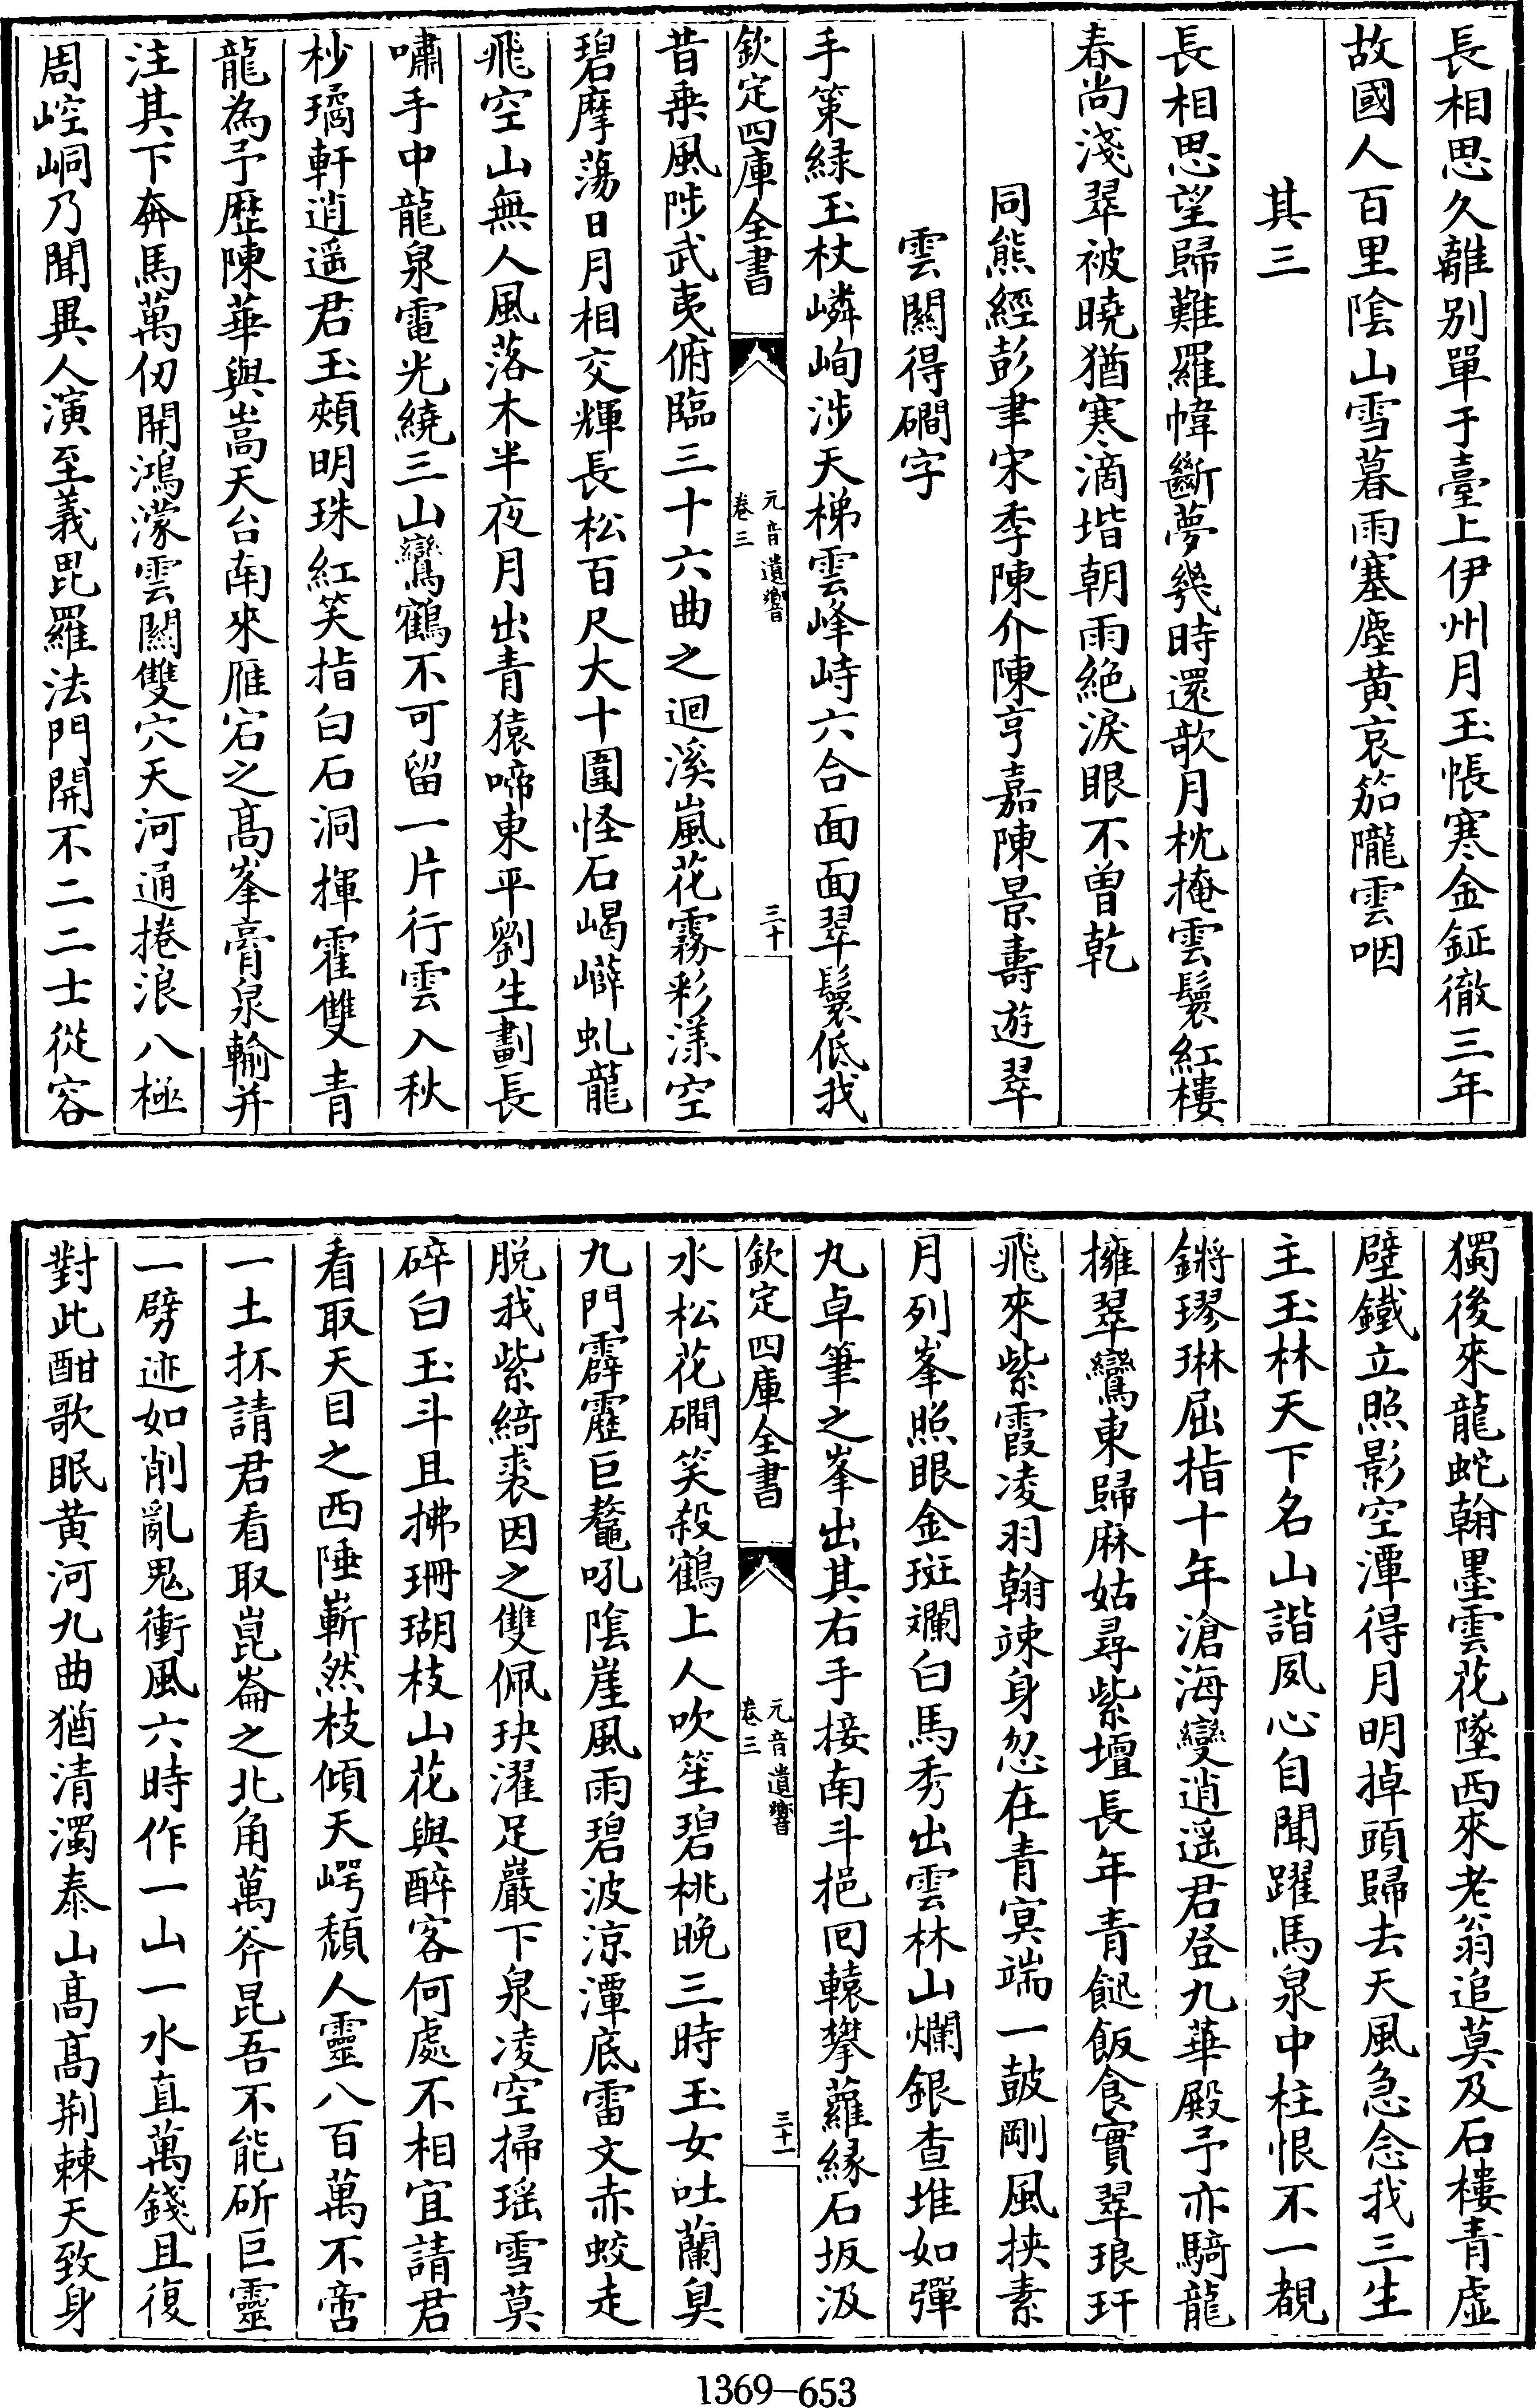 長相思久離别單于臺上伊州月玉帳寒金鉦徹三年
故國人百里陰山雪暮雨塞塵黄哀笳隴雲咽
其三
長相思望歸難羅幃斷夢幾時還歌月枕掩雲鬟紅樓
春尚淺翠被曉猶寒滴堦朝雨絶淚眼不曾乾
同熊經彭聿宋季陳介陳亨嘉陳景壽遊翠
雲關得磵字
手策緑玉杖嶙峋涉天梯雲峰峙六合面面翠鬟低我
欽定四庫全書
元音遺響
卷三
三十
昔乗風陟武夷俯臨三十六曲之迴溪嵐花霧彩漾空
碧摩蕩日月相交輝長松百尺大十圍怪石嵑㠂虬龍
飛空山無人風落木半夜月出青猿啼東平劉生劃長
嘯手中龍泉電光繞三山鸞鶴不可留一片行雲入秋
杪璚軒逍遥君玉頰明珠紅笑指白石洞揮霍雙青
龍為予歴陳華與嵩天台南來雁宕之髙峯膏泉輸并
注其下奔馬萬仞開鴻濛雲關雙穴天河通捲浪八極
周崆峒乃聞異人演至義毘羅法門開不二二士從容
獨後來龍蛇翰墨雲花墜西來老翁追莫及石樓青虚
壁鐵立照影空潭得月明掉頭歸去天風急念我三生
主玉林天下名山諧夙心自聞躍馬泉中柱恨不一覩
鏘璆琳屈指十年滄海變逍遥君登九華殿予亦騎龍
擁翠鸞東歸麻姑尋紫壇長年青䭀飯食實翠琅玕
飛來紫霞凌羽翰竦身忽在青㝠端一鼓剛風挾素
月列峯照眼金斑斕白馬秀出雲林山爛銀查堆如彈
丸卓筆之峯出其右手接南斗挹回轅攀蘿緣石坂汲
欽定四庫全書
元音遺響
卷三
三十一
水松花磵笑殺鶴上人吹笙碧桃晚三時玉女吐蘭臭
九門霹靂巨鼇吼陰崖風雨碧波涼潭底雷文赤蛟走
脱我紫綺裘因之雙佩玦濯足巖下泉凌空掃瑶雪莫
碎白玉斗且拂珊瑚枝山花與醉客何處不相宜請君
看取天目之西陲嶄然枝傾天崿頽人靈八百萬不啻
一土抔請君看取崑崙之北角萬斧昆吾不能斫巨靈
一劈迹如削亂鬼衝風六時作一山一水直萬錢且復
對此酣歌眠黄河九曲猶清濁泰山髙髙荆棘天致身
1369—653